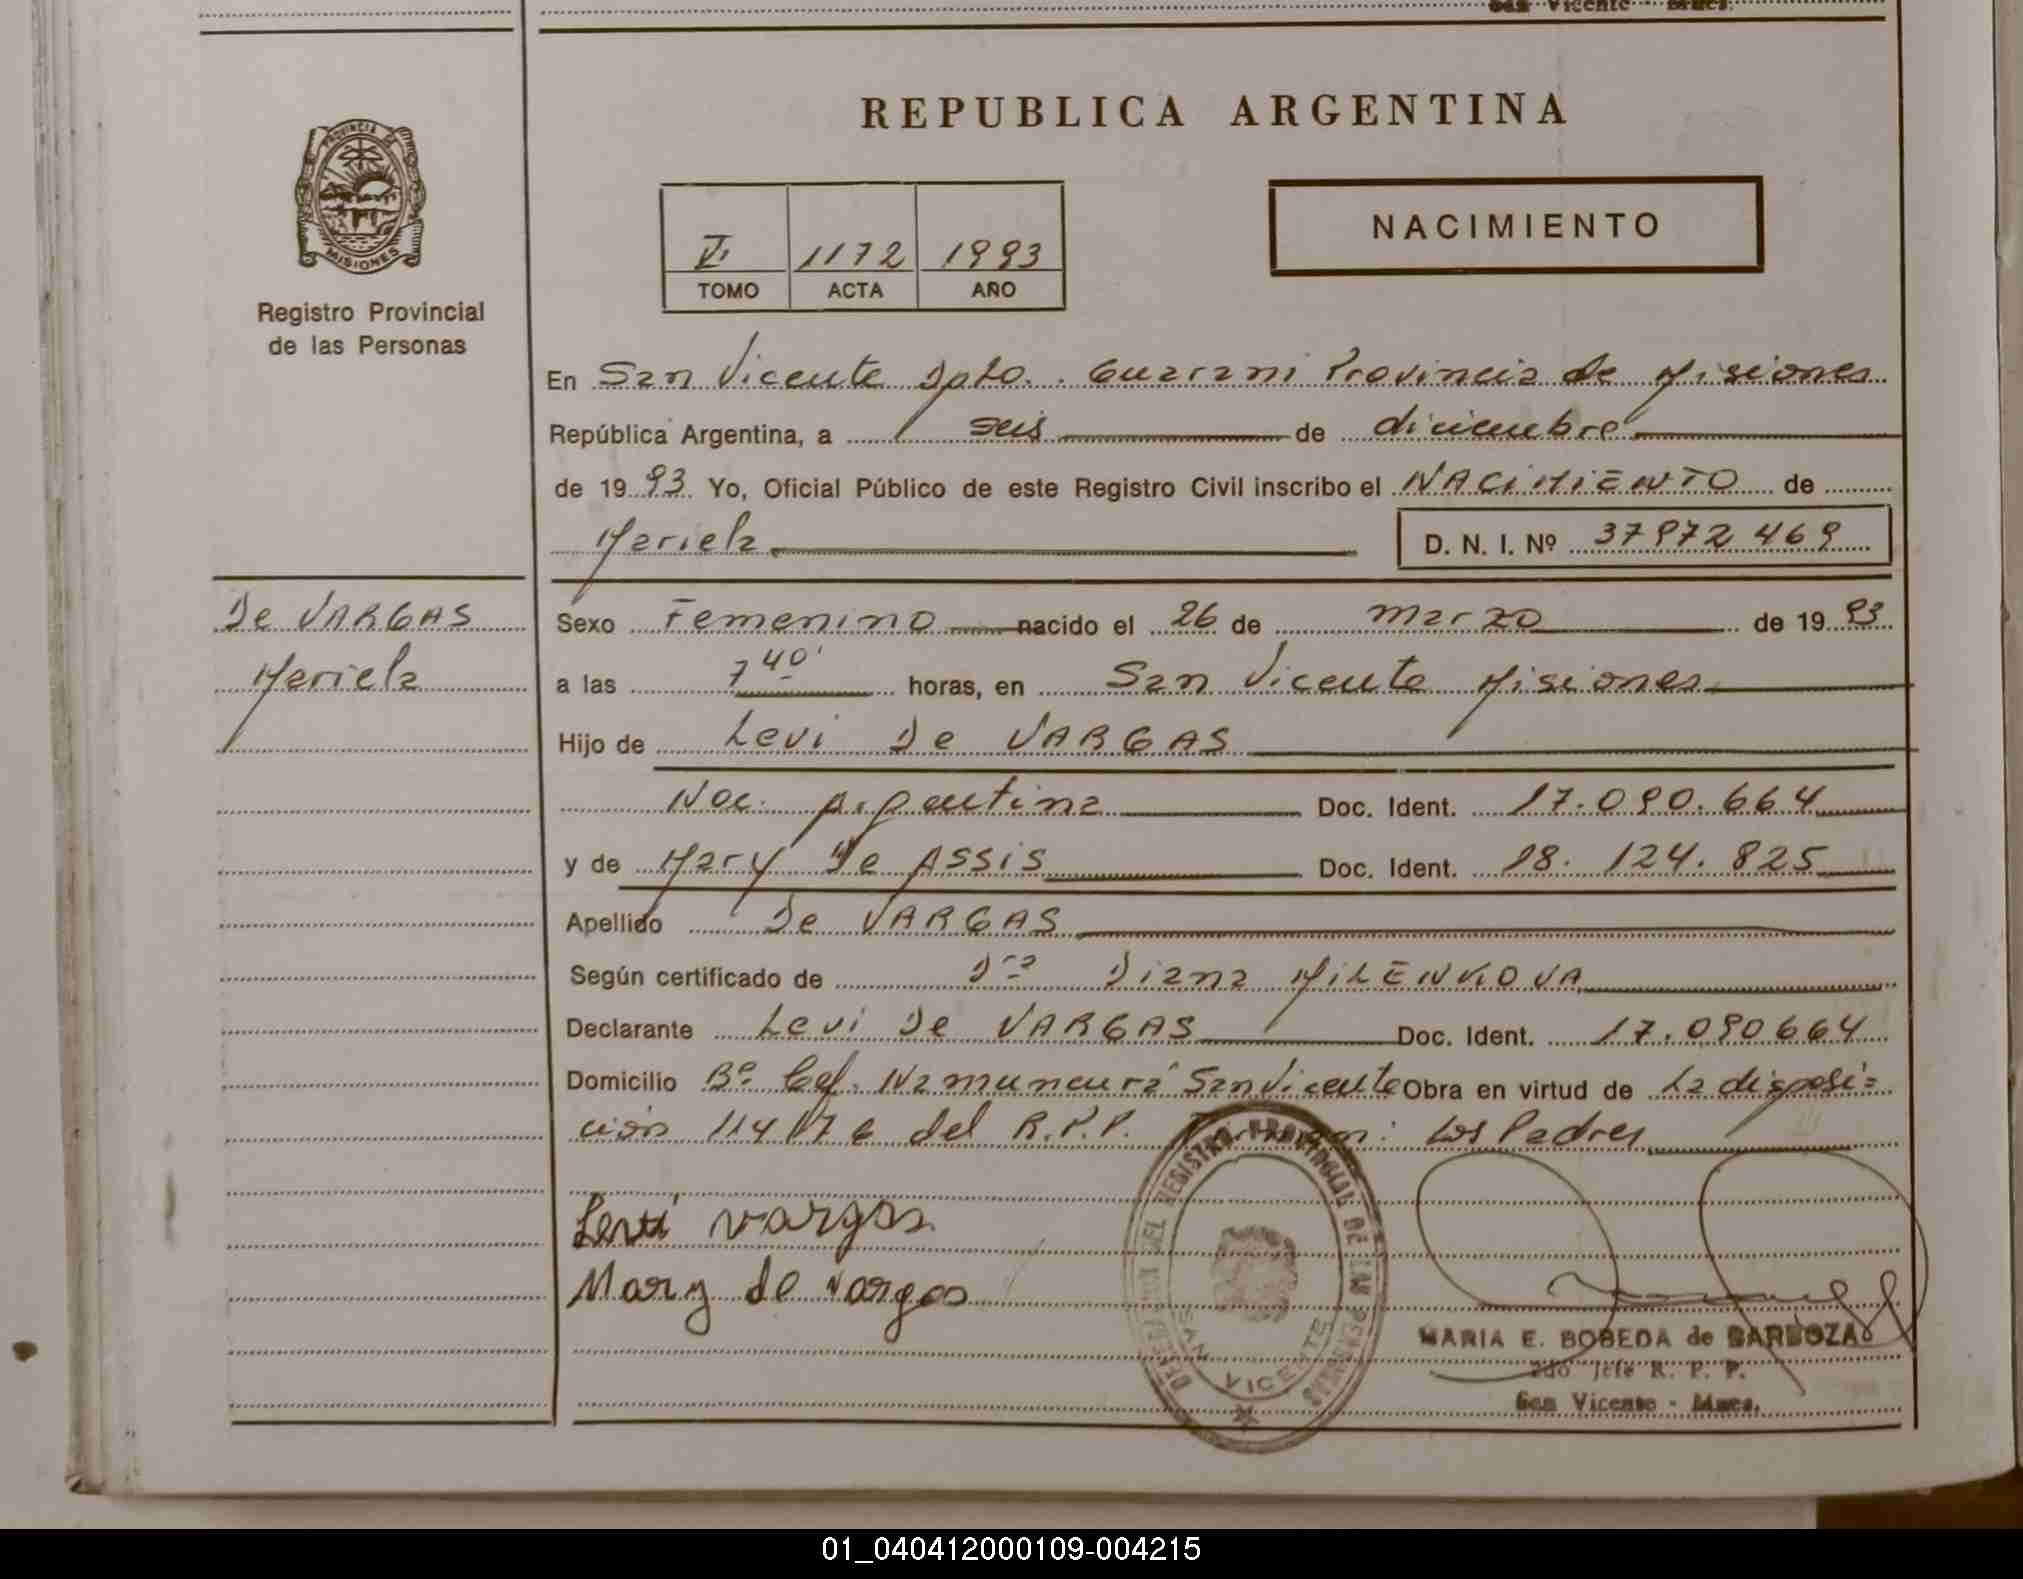 San Vicente - Mnes.
REPUBLICA ARGENTINA
PROVINCIA DE
MISIONES
Registro Provincial
de las Personas
VI 1172 1993
TOMO ACTA AÑO
NACIMIENTO
En San Vicente Dpto. Guarani Provincia de Misiones
República Argentina, a seis de diciembre
de 1993 Yo, Oficial Público de este Registro Civil inscribo el NACIMIENTO de
Mariela D. N. I. Nº 37972469
De VARGAS
Mariela
Sexo Femenino nacido el 26 de marzo de 1993
a las 7 40' horas, en San Vicente Misiones
Hijo de Levi De VARGAS
Nac. Argentina Doc. Ident. 17.090.664
y de Mary De ASSIS Doc. Ident. 18.124.825
Apellido De VARGAS
Según certificado de Dra Diana MILENKOVA
Declarante Levi De VARGAS Doc. Ident. 17.090664
Domicilio Bº Cef. Namuncurá San Vicente Obra en virtud de La disposi=
ción 114/76 del R.P.P. Firman: Los Padres
Levi Vargas
Mary de Vargas
DEL REGISTRO PROVINCIAL DE LAS PERSONAS
SAN VICENTE
MARIA E. BOBEDA de BARBOZA
2do Jefe R. P. P.
San Vicente - Mnes.
01_040412000109-004215